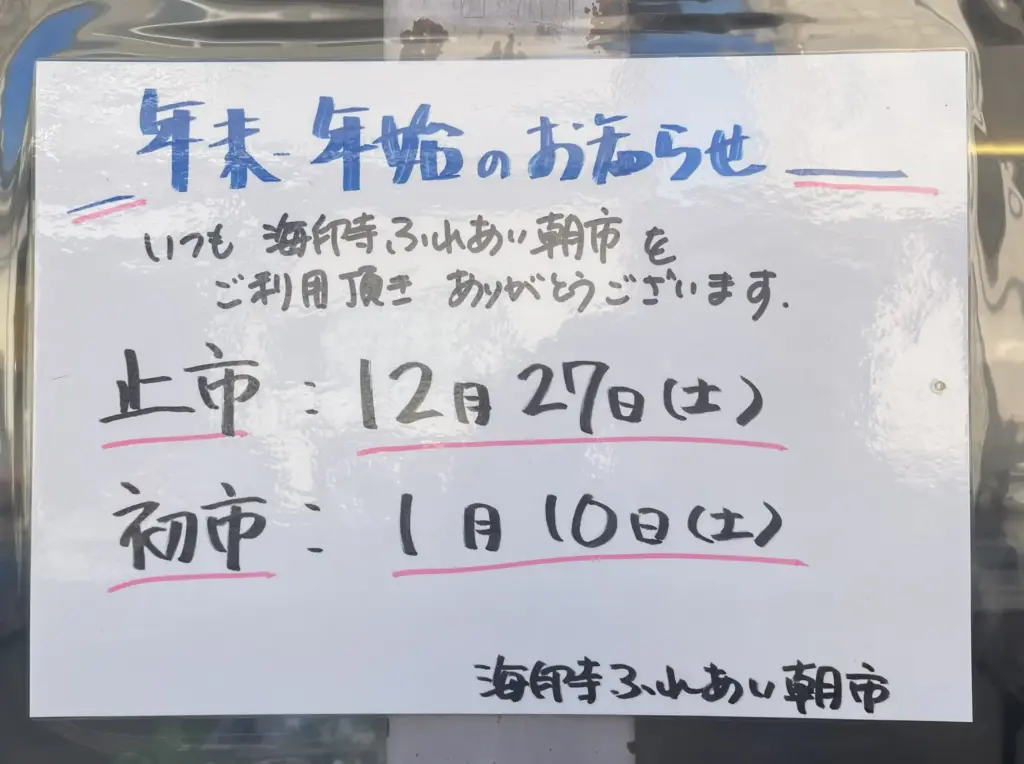 年末年始のお知らせ
いつも 海印寺ふれあい朝市を
ご利用頂き ありがとうございます.
止市：12月27日(土)
初市：1月10日(土)
海印寺ふれあい朝市